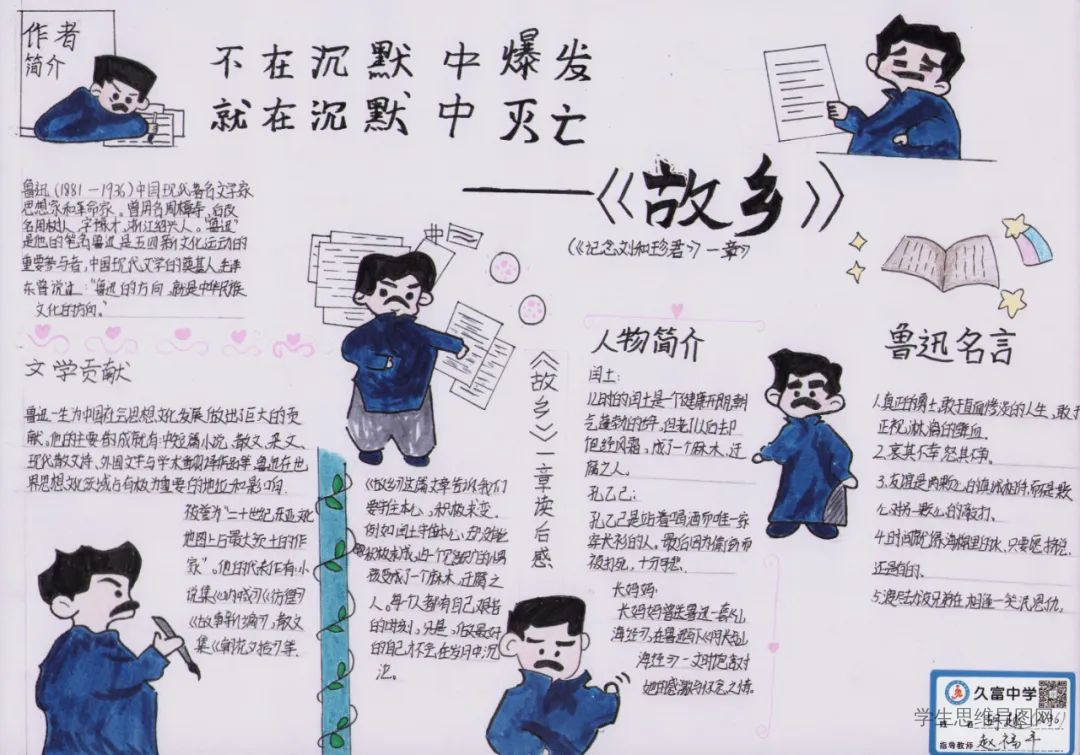 作者
简介
不在沉默中爆发
就在沉默中灭亡
——《故乡》
(《记念刘和珍君》一章)
鲁迅(1881—1936)中国现代著名文学家
思想家和革命家。曾用名周樟寿,后改
名周树人,字豫才,浙江绍兴人。"鲁迅"
是他的笔名鲁迅是五四新文化运动的
重要参与者,中国现代文学的奠基人毛泽
东曾说过:"鲁迅的方向,就是中华民族
文化的方向。"
文学贡献
鲁迅一生为中国社会思想文化发展做出了巨大的贡
献。他的主要成就有:中短篇小说、散文、杂文、
现代散文诗、外国文学与学术翻译作品等,鲁迅在世
界思想文学域占有极为重要的地位和影响
被誉为"二十世纪东亚文化
地图上占最大领土的作
家"。他的代表作有:小
说集《呐喊》《彷徨》
《故事新编》,散文
集《朝花夕拾》等
《故乡》一章读后感
《故乡》这篇文章告诉我们
要守住本心,积极求变。
例如闰土守住本心,却没能
人。每个人都有自己艰苦
的时刻,只是,做最好
的自己,才不会在岁月中沉
沦。
人物简介
闰土:
儿时的闰土是一个健康开朗,朝
气蓬勃的少年,但老了以后却
饱经风霜,成了一个麻木、迂
腐之人。
孔乙己:
孔乙己是站着喝酒而唯一穿
长衫的人。最后因为偷书而
被打死,十分可悲。
长妈妈:
长妈妈曾送鲁迅一套《山
海经》,在鲁迅写下《阿长与山
海经》一文时饱含对
她的感激与怀念之情。
鲁迅名言
1.真正的勇士,敢于直面惨淡的人生,敢于
正视淋漓的鲜血。
2.哀其不幸,怒其不争。
3.友谊是两颗心的真诚相待,而是一颗
心对另一颗心的敲打。
4.时间就像海绵里的水,只要愿挤,总
还是有的。
5.渡尽劫波兄弟在,相逢一笑泯恩仇。
久富中学
学生思维导图网
姓名
指导教师 赵福平